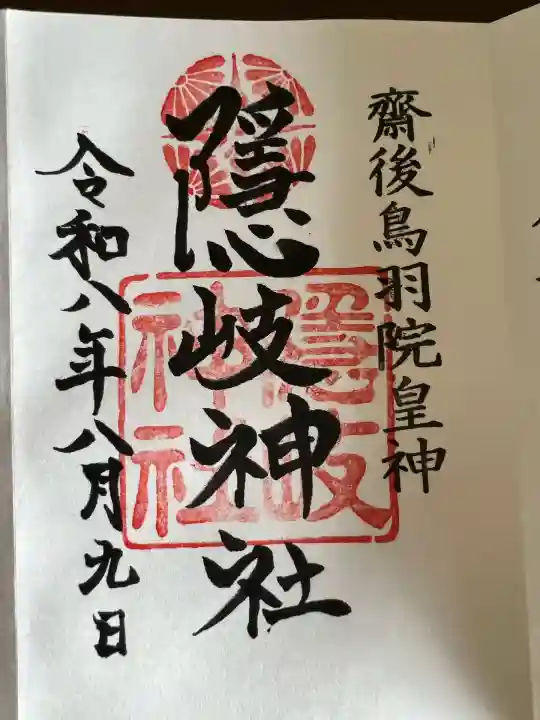 齋後鳥羽院皇神
隠岐神社
令和八年八月九日
隠岐
神社